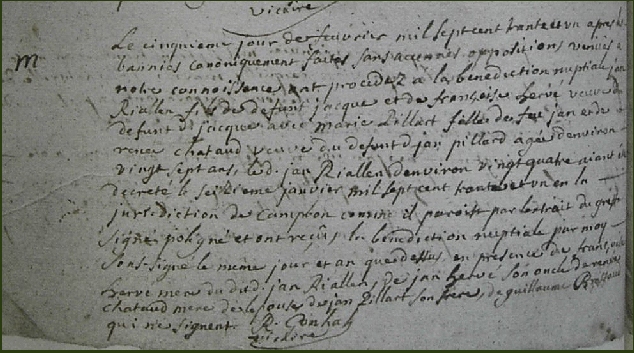 vicaire
m
Le cinquieme jour de feuvrier mil sept cent trante et un apres les
bannies canoniquement faites sans aucunnes oppositions venues a
notre connoissences ont procedez a la benediction nuptiale jan
Riallen fils de defunt jacque et de françoise herve, veuve du
defunt d. jacque avec marie Lillart fille de feu jan et de
renee chataud veuve du defont d. jan pillard agee denviron
vingt sept ans, led. jan Riallen denviron vingt quatre aiant
decreté le seizieme janvier mil sept cent trante et un en la
jurisdiction de Campbon comme il paroist par lextrait du greffe
signé poligné et ont reçus la benediction nuptiale par moy
soussigné le meme jour et an que dessus en presence de françoise
herve mere du dud. jan Riallen, de jan herve son oncle de renee
chataud mere de lepouse de jan Lillart son frere, de guillaume
qui ne signent
vicaire